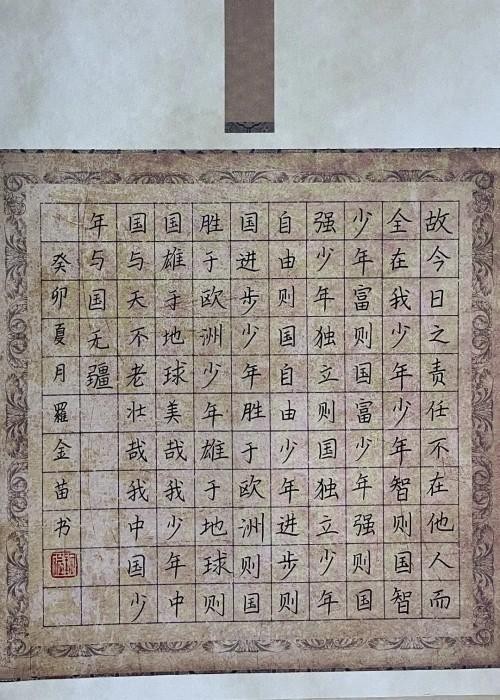 故今日之责任不在他人而
全在我少年少年智则国智
少年富则国富少年强则国
强少年独立则国独立少年
自由则国自由少年进步则
国进步少年胜于欧洲则国
胜于欧洲少年雄于地球则
国雄于地球美哉我少年中
国与天不老壮哉我中国少
年与国无疆
癸卯夏月羅金苗书